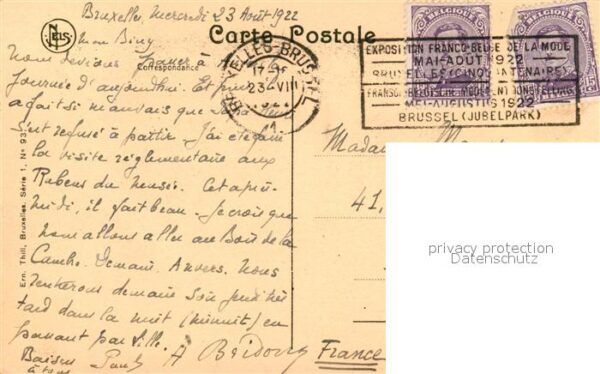 Bruxelles, mercredi 23 Août 1922
NELS
Carte Postale
Correspondance
mon Bisy
Nous devions passer à
journée d'aujourd'hui. Et puis
a fait si mauvais que
s'est refusé à partir. J'ai
la visite réglementaire aux
Rubens du musée. Cet après-
midi, il fait beau. Je crois que
nous allons aller au Bois de la
Cambre. Demain, Anvers. Nous
rentrerons demain soir
tard dans la nuit (minuit) en
passant par Lille.
Baisers
à tous Paul
Ern. Thill, Bruxelles. Série 1, No 93.
BRUXELLES-BRUSSEL
23-VIII
BELGIQUE
BELGIQUE
EXPOSITION FRANCO-BELGE DE LA MODE
MAI-AOUT 1922
BRUXELLES (CINQUANTENAIRE)
MEI-AUGUSTUS 1922
BRUSSEL (JUBELPARK)
Madame
41,
privacy protection
Datenschutz
France